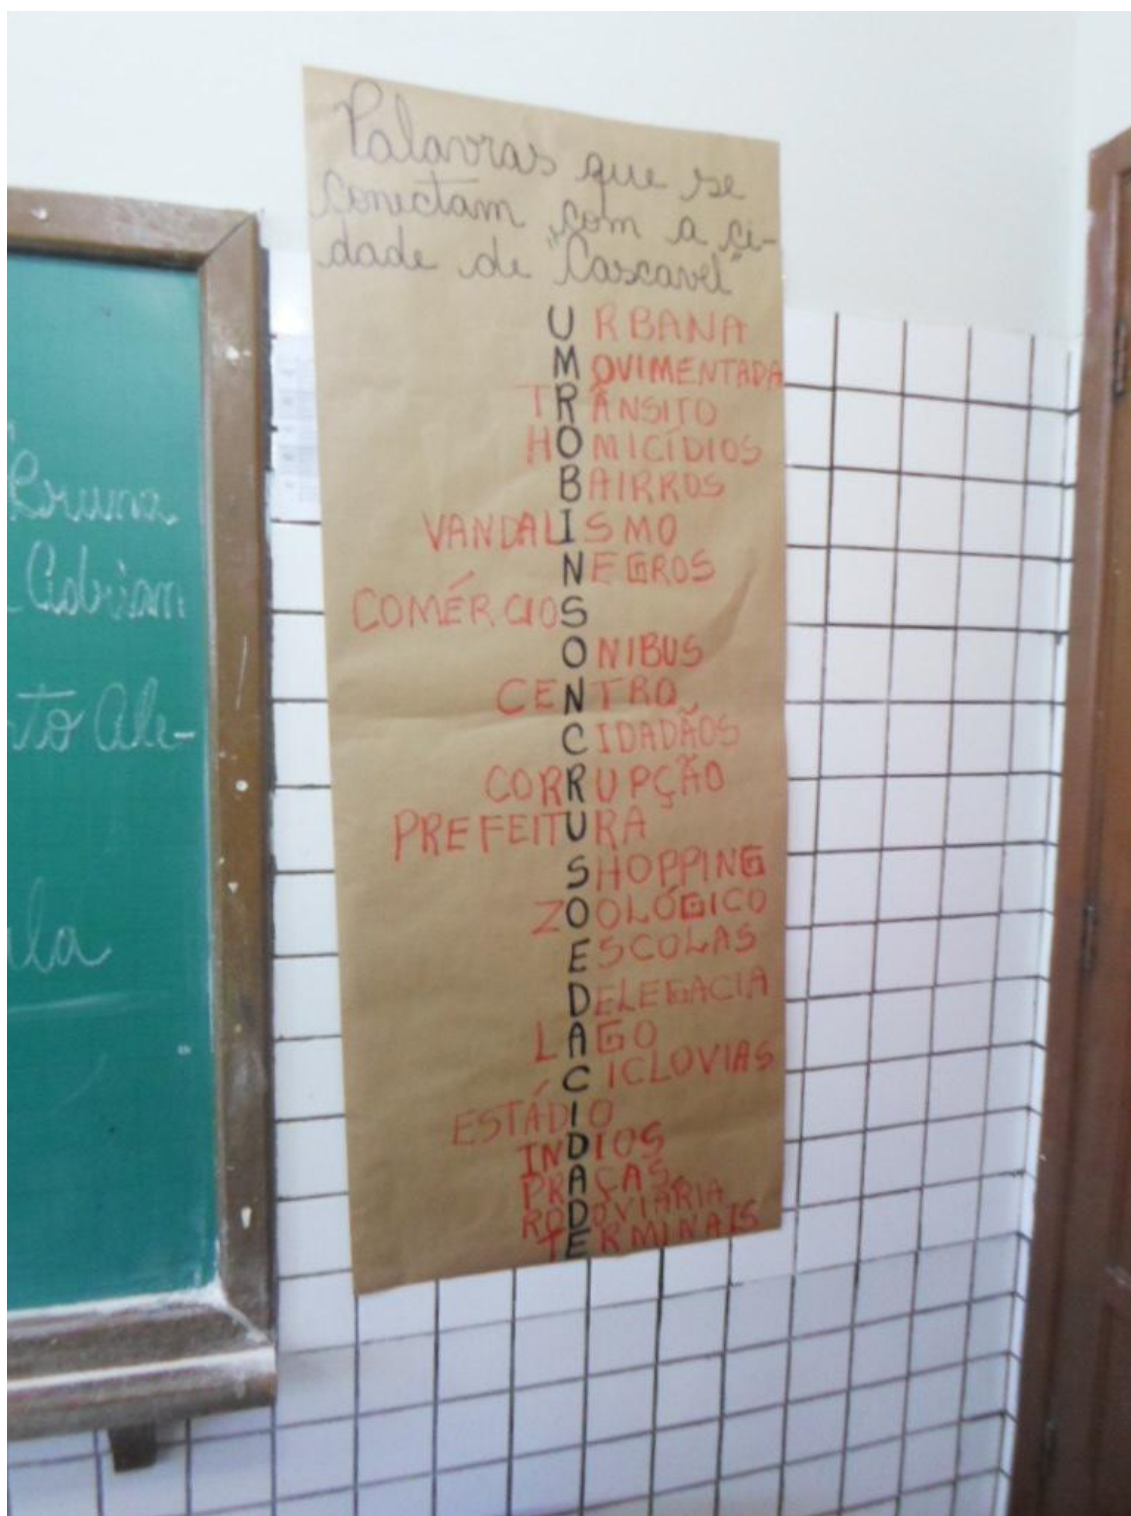 Palavras que se
conectam com a ci-
dade de "Cascavel"
URBANA
MOVIMENTADA
TRÂNSITO
HOMICÍDIOS
BAIRROS
VANDALISMO
NEGROS
COMÉRCIOS
ONIBUS
CENTRO
CIDADÃOS
CORRUPÇÃO
PREFEITURA
SHOPPING
ZOOLÓGICO
ESCOLAS
DELEGACIA
LAGO
CICLOVIAS
ESTÁDIO
INDIOS
PRAÇAS
RODOVIÁRIA
TERMINAIS
Bruna